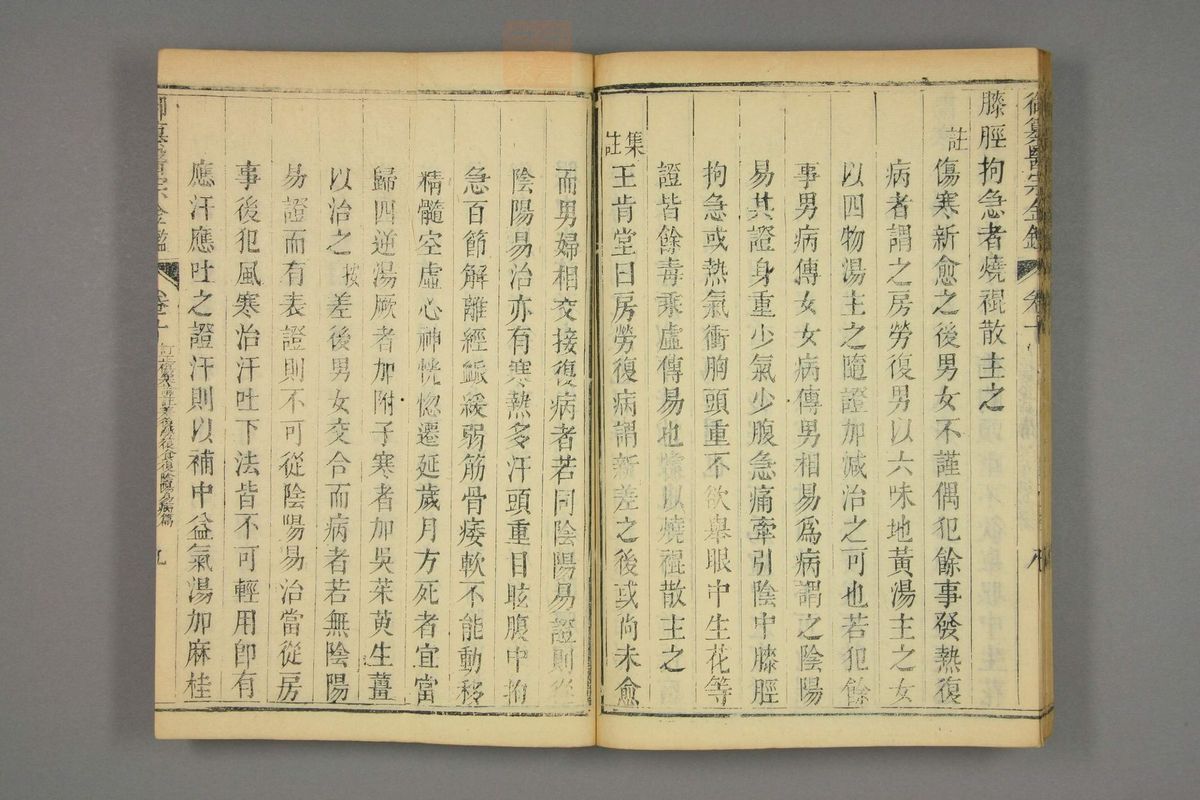 御纂醫宗金鑑 卷十 八
膝脛拘急者燒裩散主之
註傷寒新愈之後男女不謹偶犯餘事發熱復
病者謂之房勞復男以六味地黃湯主之女
以四物湯主之隨證加減治之可也若犯餘
事男病傳女女病傳男相易爲病謂之陰陽
易其證身重少氣少腹急痛牽引陰中膝脛
拘急或熱氣衝胸頭重不欲舉眼中生花等
證皆餘毒乘虛傳易也以燒裩散主之
集註王肯堂曰房勞復病謂新差之後或尚未愈
而男婦相交接復病者若因陰陽易證則從
陰陽易治亦有寒熱多汗頭重目眩腹中拘
急百節解離經脈緩弱筋骨痿軟不能動移
精髓空虛心神恍惚遷延歲月方死者宜當
歸四逆湯厥者加附子寒者加吳茱萸生薑
以治之按差後男女交合而病者若無陰陽
易證而有表證則不可從陰陽易治當從房
事後犯風寒治汗吐下法皆不可輕用卽有
應汗應吐之證汗則以補中益氣湯加麻桂
御纂醫宗金鑑 卷十 九